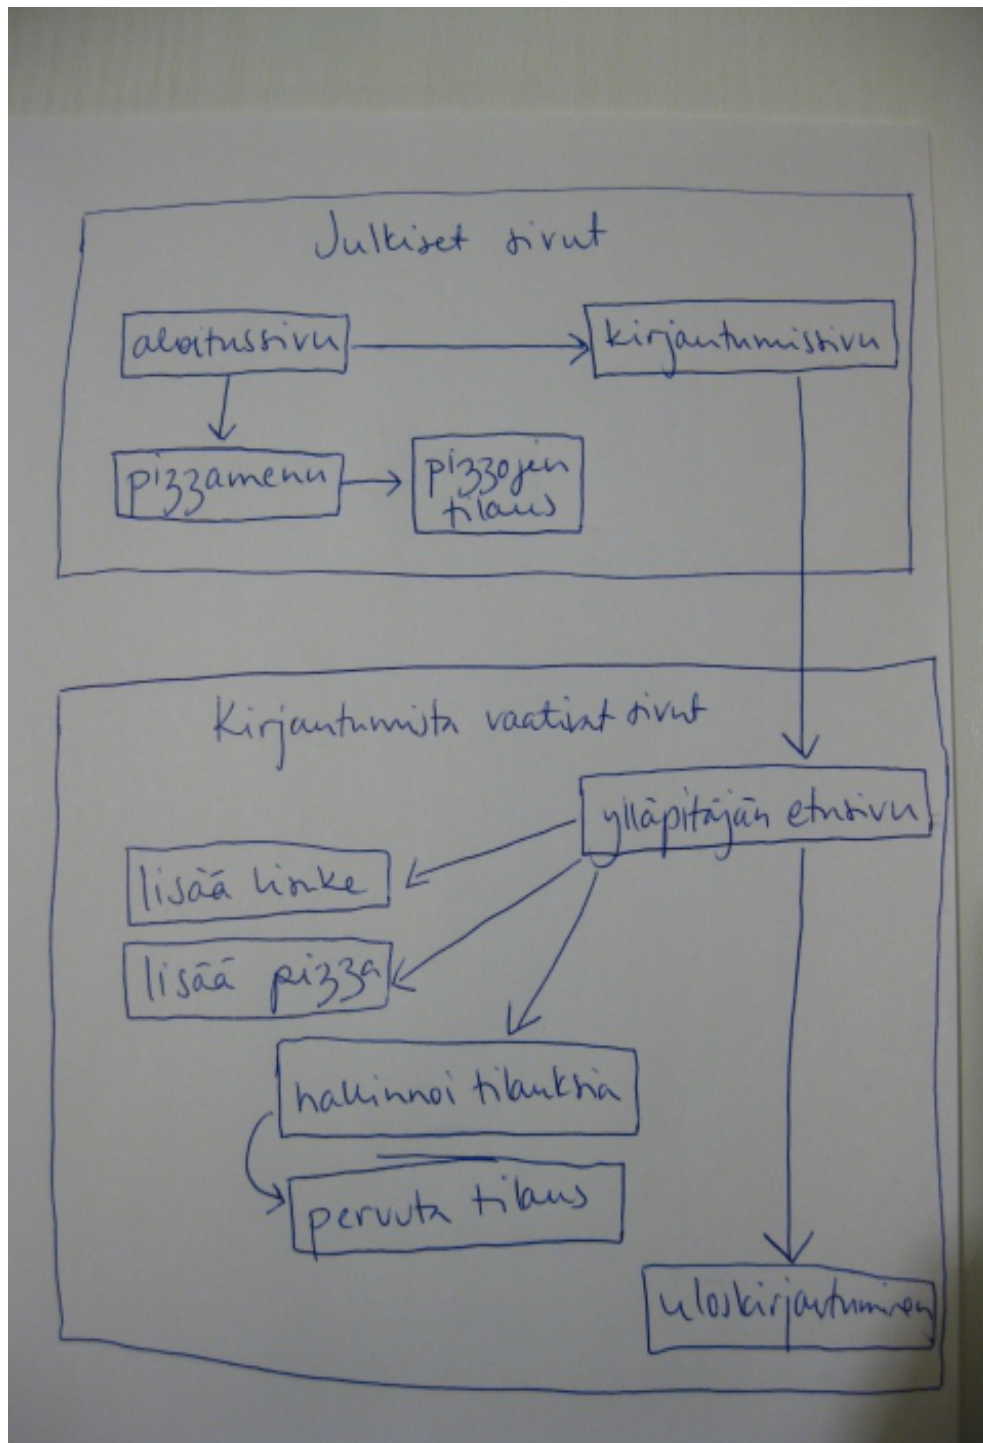 Julkiset sivut
aloitussivu
kirjautumissivu
pizzamenu
pizzojen
tilaus
Kirjautumista vaativat sivut
ylläpitäjän etusivu
lisää lisuke
lisää pizza
hallinnoi tilauksia
peruuta tilaus
uloskirjautuminen